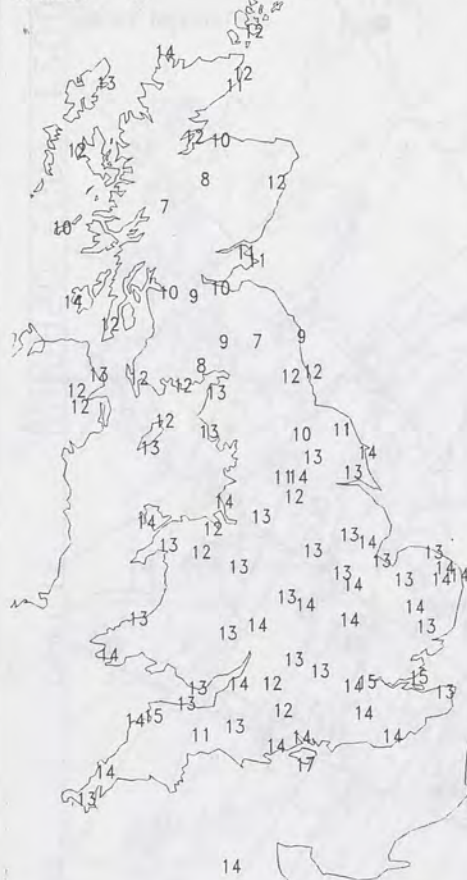 12
14
12
13 11
12 10
12
8 12
7
10
11 11
10 9 10
14
12
9 7 9
8
13 12 12 12 12
12 13
12
12
13 13 10 11
14
13 13
11 14
12
14
14 13
12
13 14
13 12 13 13 13
13 14 14
13 13 14 14 13
13 14 14
13 13 14 14 13
14
13 13
13 14 12 14 15 15 13
13
14 15 12 14
11 13
14 14 14
17
14
13
14